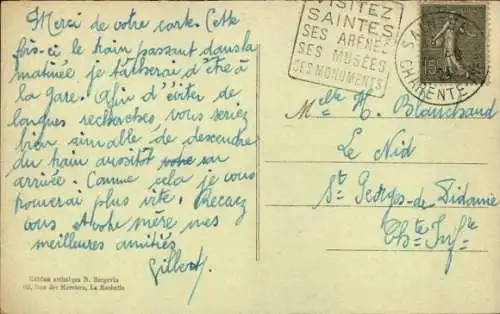 Merci de votre carte. Cette
fois-ci le train passant dans la
matinée je tâcherai d'être à
la gare. Afin d'éviter de
longues recherches vous seriez
bien aimable de descendre
du train aussitôt votre arrivée
arrivée. Comme cela je vous
trouverai plus vite. Recevez
vous et votre mère mes
meilleures amitiés
Gilbert
VISITEZ
SAINTES
SES ARÈNES
SES MUSÉES
SES MONUMENTS
15
CHARENTE
Melle H. Blanchard
Le Nid
St Georges-de-Didonne
Chte Infre
Édition artistique N. Bergevin
rue des Merciers, La Rochelle